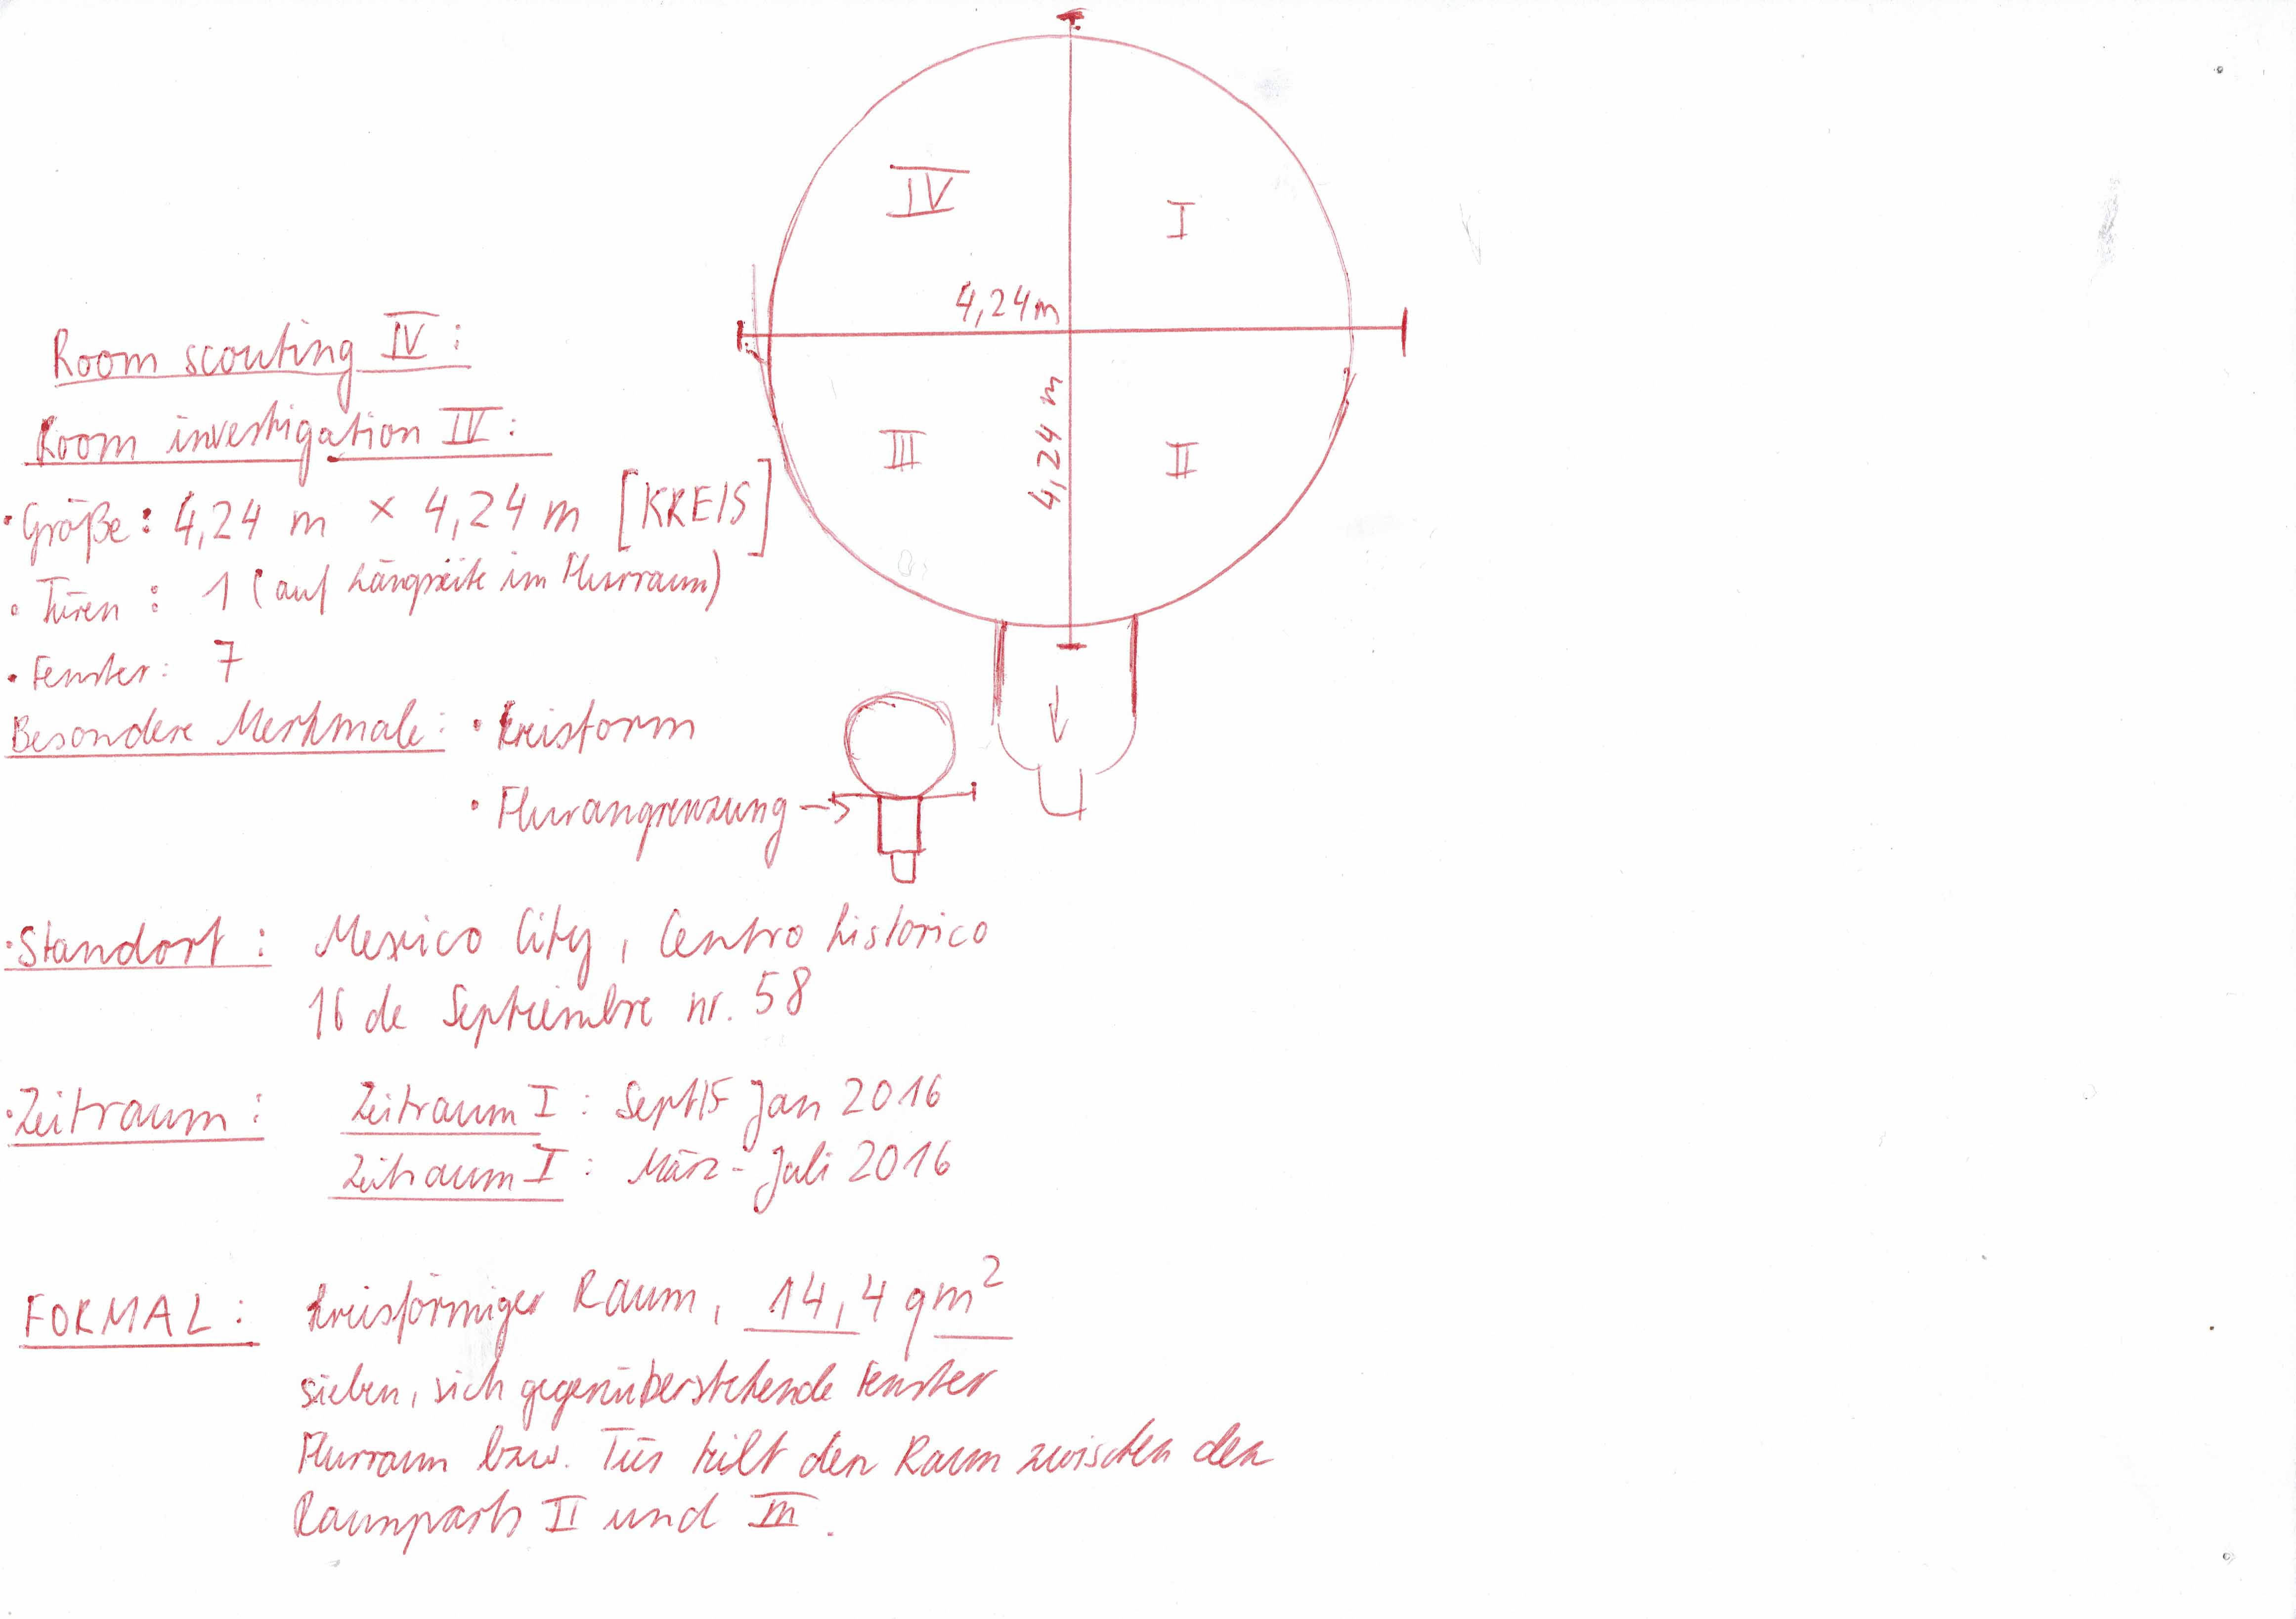 IV
I
4,24m
4,24 m
III
II
Room scouting IV:
Room investigation IV:
• Größe: 4,24 m × 4,24 m [KREIS]
• Türen: 1 (auf Längseite im Flurraum)
• Fenster: 7
Besondere Merkmale: • Kreisform
• Flurangrenzung →
• Standort: Mexico City, Centro historico
16 de Septiembre nr. 58
• Zeitraum: Zeitraum I: Sept15 Jan 2016
Zeitraum I: März - Juli 2016
FORMAL: kreisförmiger Raum, 14,4 qm²
sieben, sich gegenüberstehende Fenster
Flurraum bzw. Tür teilt den Raum zwischen den
Raumparts II und III.